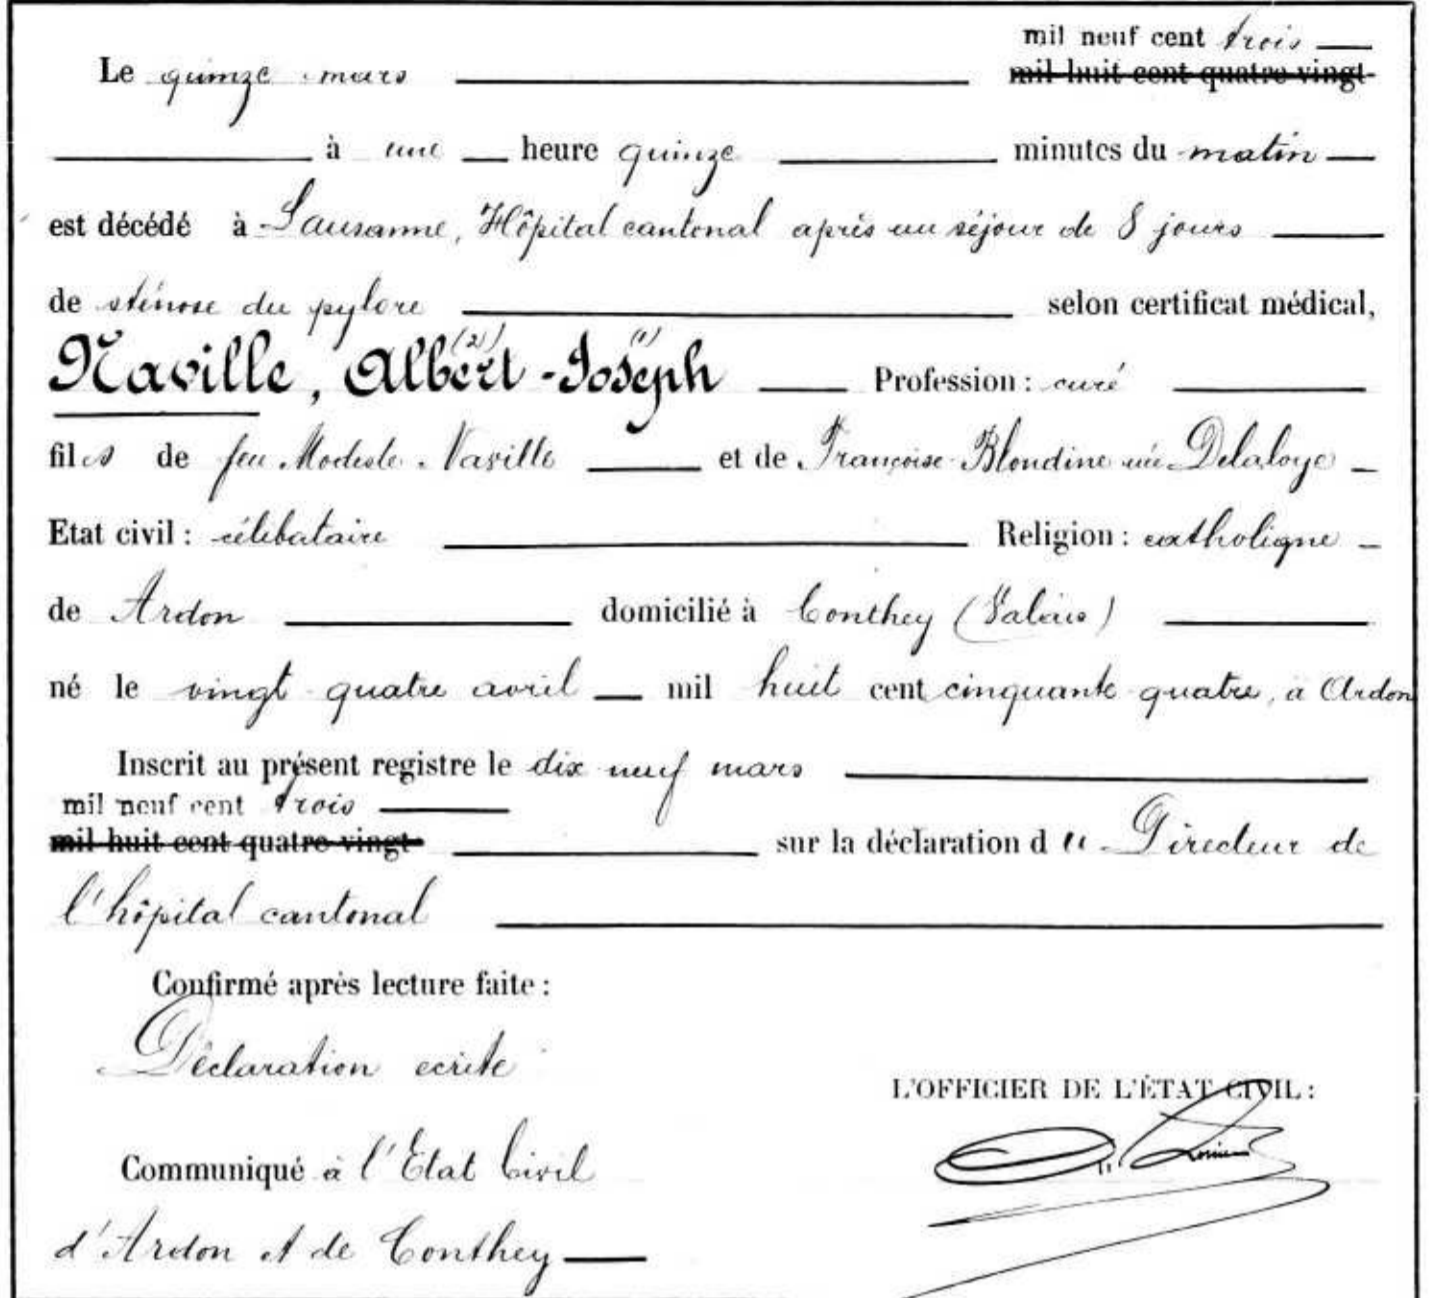 mil neuf cent trois
Le quinze mars mil huit cent quatre vingt-
à une heure quinze minutes du matin
est décédé à Lausanne, Hôpital cantonal après un séjour de 8 jours
de sténose du pylore selon certificat médical,
(2) (1)
Naville, Albert-Joseph Profession : curé
fils de feu Modeste Naville et de Françoise-Blondine née Delaloye
Etat civil : célibataire Religion : catholique
de Ardon domicilié à Conthey (Valais)
né le vingt quatre avril mil huit cent cinquante quatre, à Ardon
Inscrit au présent registre le dix neuf mars
mil neuf cent trois
mil huit cent quatre vingt- sur la déclaration du Directeur de
l'hôpital cantonal
Confirmé après lecture faite :
Déclaration ecrite
L'OFFICIER DE L'ÉTAT CIVIL :
Communiqué à l'Etat Civil
d'Ardon et de Conthey